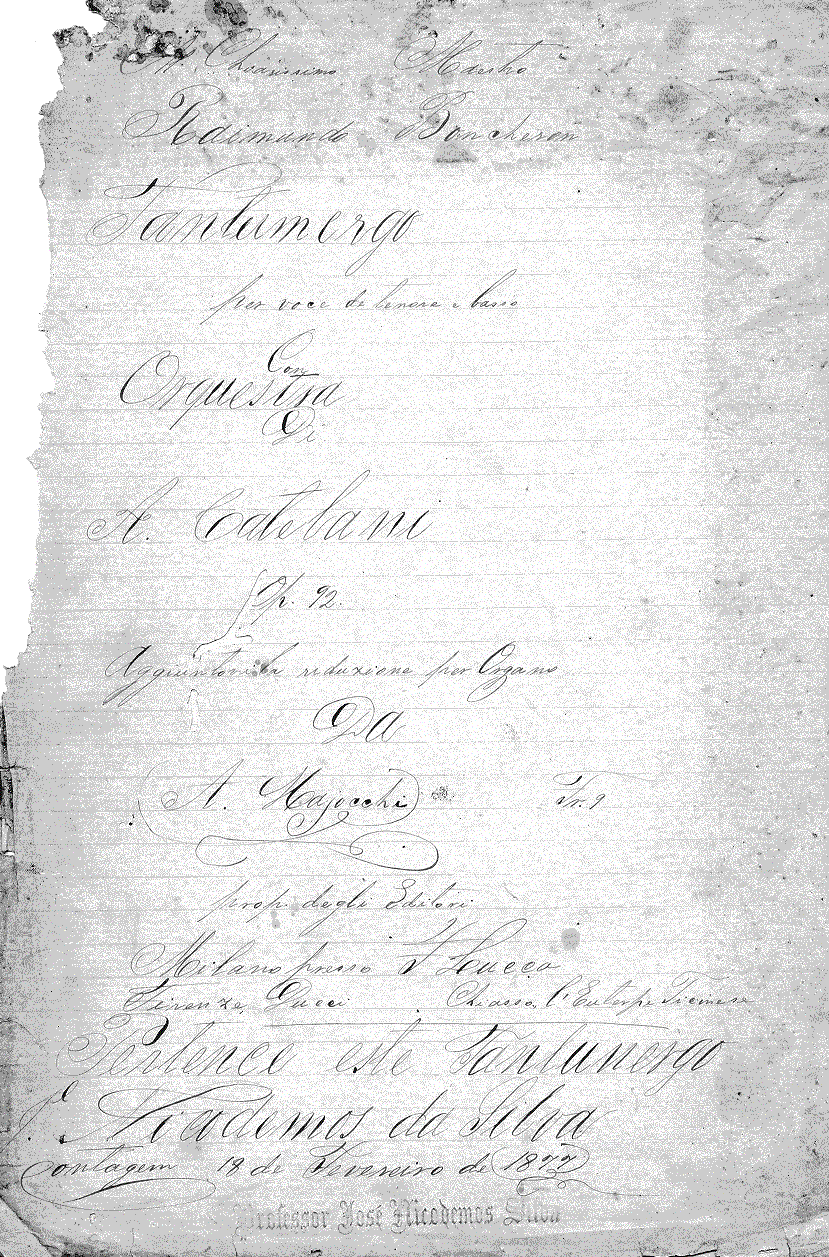 Al Chiarissimo Maestro
Raimundo Boncheron
Tantumergo
per voce di tenore e basso
Con
Orquestra
Di
A. Catelani
Op. 92.
Aggiuntovi la riduzione per Organo
Da
A. Majocchi Fr. 9
prop. degli Editori
Milano presso F Lucca
Firenze, Ducci Chiasso, l'Euterpe Ticinese
Pertence este Tantunergo
J. Nicodemos da Silva
Contagem 18 de Fevereiro de
Professor José Nicodemos Silva